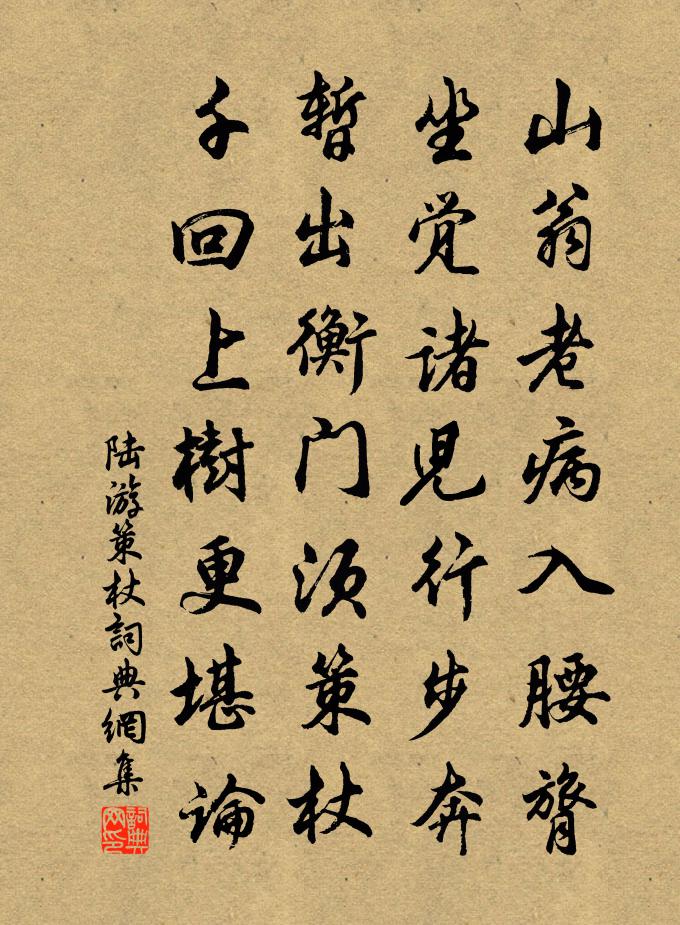 山翁老病入腰膂
坐覚诸児行步奔
暂出衡门须策杖
千回上樹更堪論
陆游策杖詞典網集
詞典网印